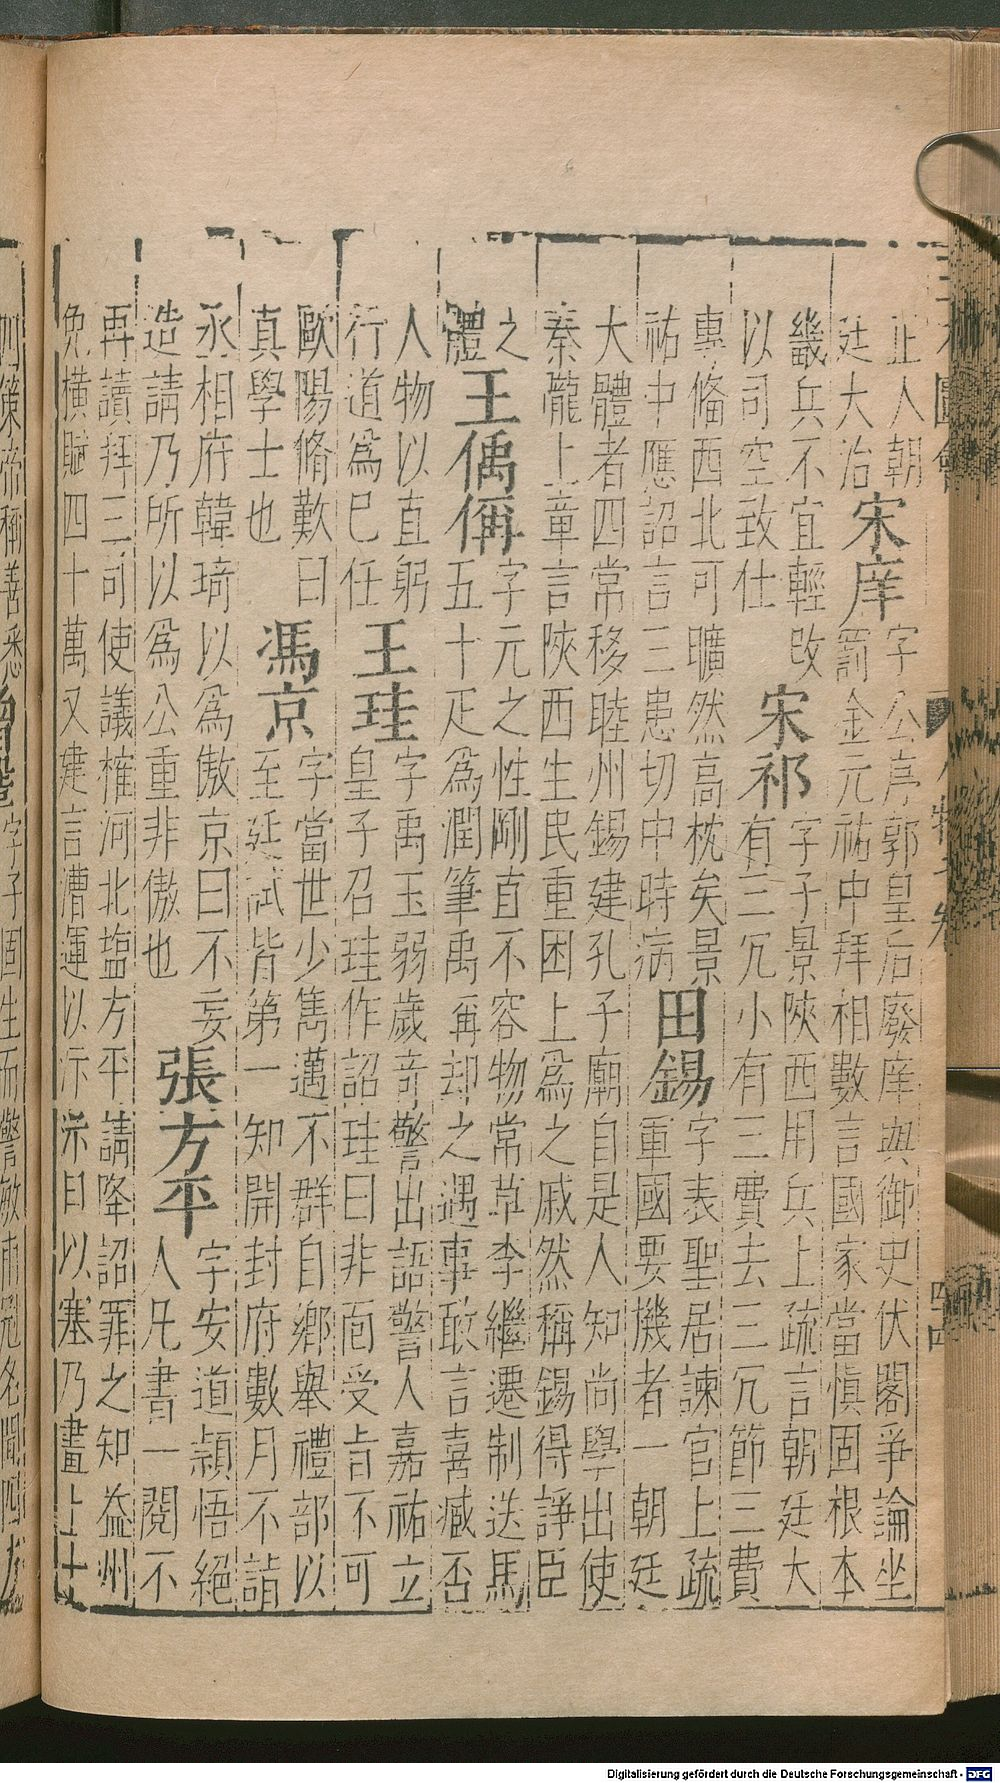 三才圖會
人物七卷
四四
正人朝
廷大治
宋庠
字公序郭皇后廢庠與御史伏閤爭論坐
罰金元祐中拜相數言國家當慎固根本
畿兵不宜輕改
以司空致仕
宋祁
字子景陝西用兵上疏言朝廷大
有三冗小有三費去三冗節三費
專備西北可曠然高枕矣景
祐中應詔言三患切中時病
田錫
字表聖居諫官上疏
軍國要機者一朝廷
大體者四常移睦州錫建孔子廟自是人知尚學出使
秦隴上章言陝西生民重困上為之戚然稱錫得諍臣
之
體
王偊偁
字元之性剛直不容物常草李繼遷制送馬
五十疋為潤筆禹偁却之遇事敢言喜臧否
人物以直躬
行道為己任
王珪
字禹玉弱歲奇警出語警人嘉祐立
皇子召珪作詔珪曰非面受旨不可
歐陽脩歎曰
真學士也
馮京
字當世少雋邁不群自鄉舉禮部以
至廷試皆第一知開封府數月不詣
丞相府韓琦以為傲京曰不妄
造請乃所以為公重非傲也
張方平
字安道穎悟絕
人凡書一閱不
再讀拜三司使議榷河北塩方平請降詔罪之知益州
免橫賦四十萬又建言漕運以汴 以塞乃畫上十
四策帝稱善悉
曾鞏
字子固生而警敏甫冠名聞四方
Digitalisierung gefördert durch die Deutsche Forschungsgemeinschaft - DFG